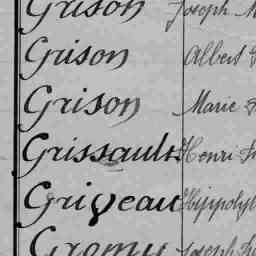 Grison Joseph M
Grison Albert
Grison Marie
Grissault Henri
Griveau Hippolyt
Gromy Joseph